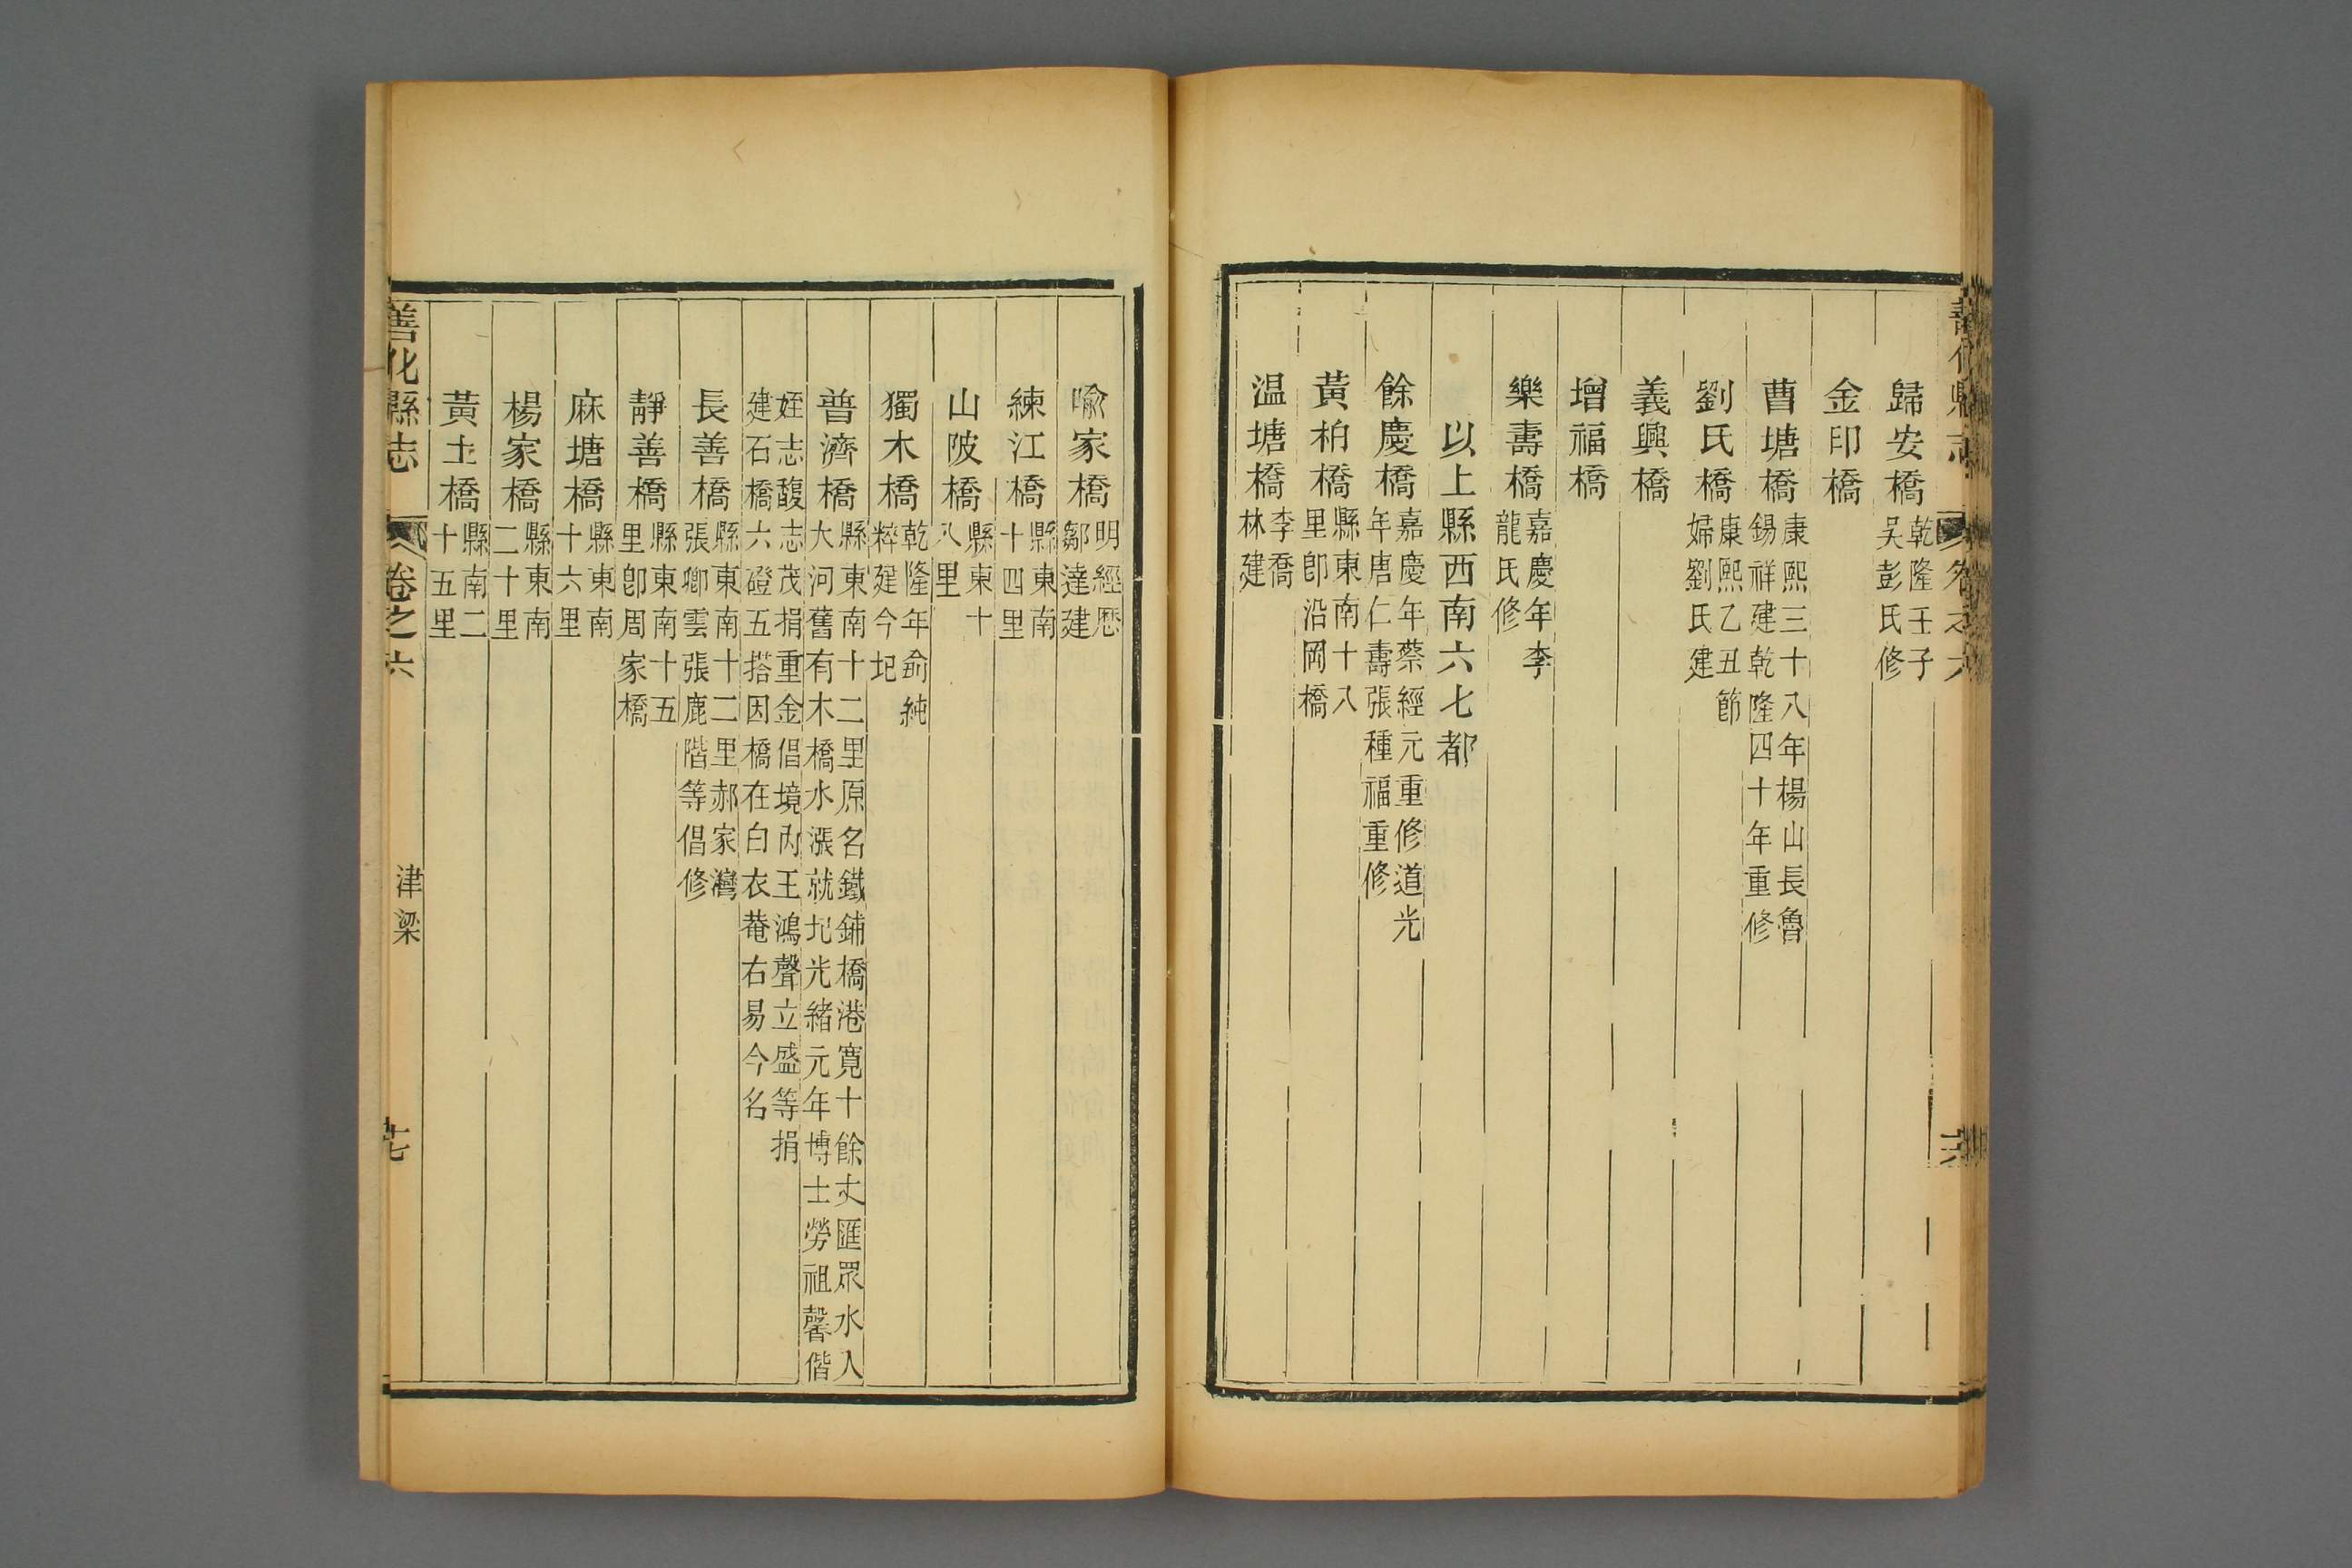 善化縣志 卷之六
歸安橋 乾隆壬子
吳彭氏修
金印橋
曹塘橋 康熙三十八年楊山長魯
錫祥建乾隆四十年重修
劉氏橋 康熙乙丑節
婦劉氏建
義興橋
增福橋
樂壽橋 嘉慶年李
龍氏修
以上縣西南六七都
餘慶橋 嘉慶年蔡經元重修道光
年唐仁壽張種福重修
黃柏橋 縣東南十八
里卽沿岡橋
温塘橋 李喬
林建
喩家橋 明經歷
鄒達建
練江橋 縣東南
十四里
山陂橋 縣東十
八里
獨木橋 乾隆年俞純
粹建今圮
普濟橋 縣東南十二里原名鐵鋪橋港寬十餘丈匯眾水入
大河舊有木橋水漲就圮光緒元年博士勞祖馨偕
姪志馥志茂捐重金倡境內王鴻聲立盛等捐
建石橋六磴五搭因橋在白衣菴右易今名
長善橋 縣東南十二里郝家灣
張卿雲張鹿階等倡修
靜善橋 縣東南十五
里卽周家橋
麻塘橋 縣東南
十六里
楊家橋 縣東南
二十里
黃土橋 縣南二
十五里
善化縣志 卷之六 津梁 十七